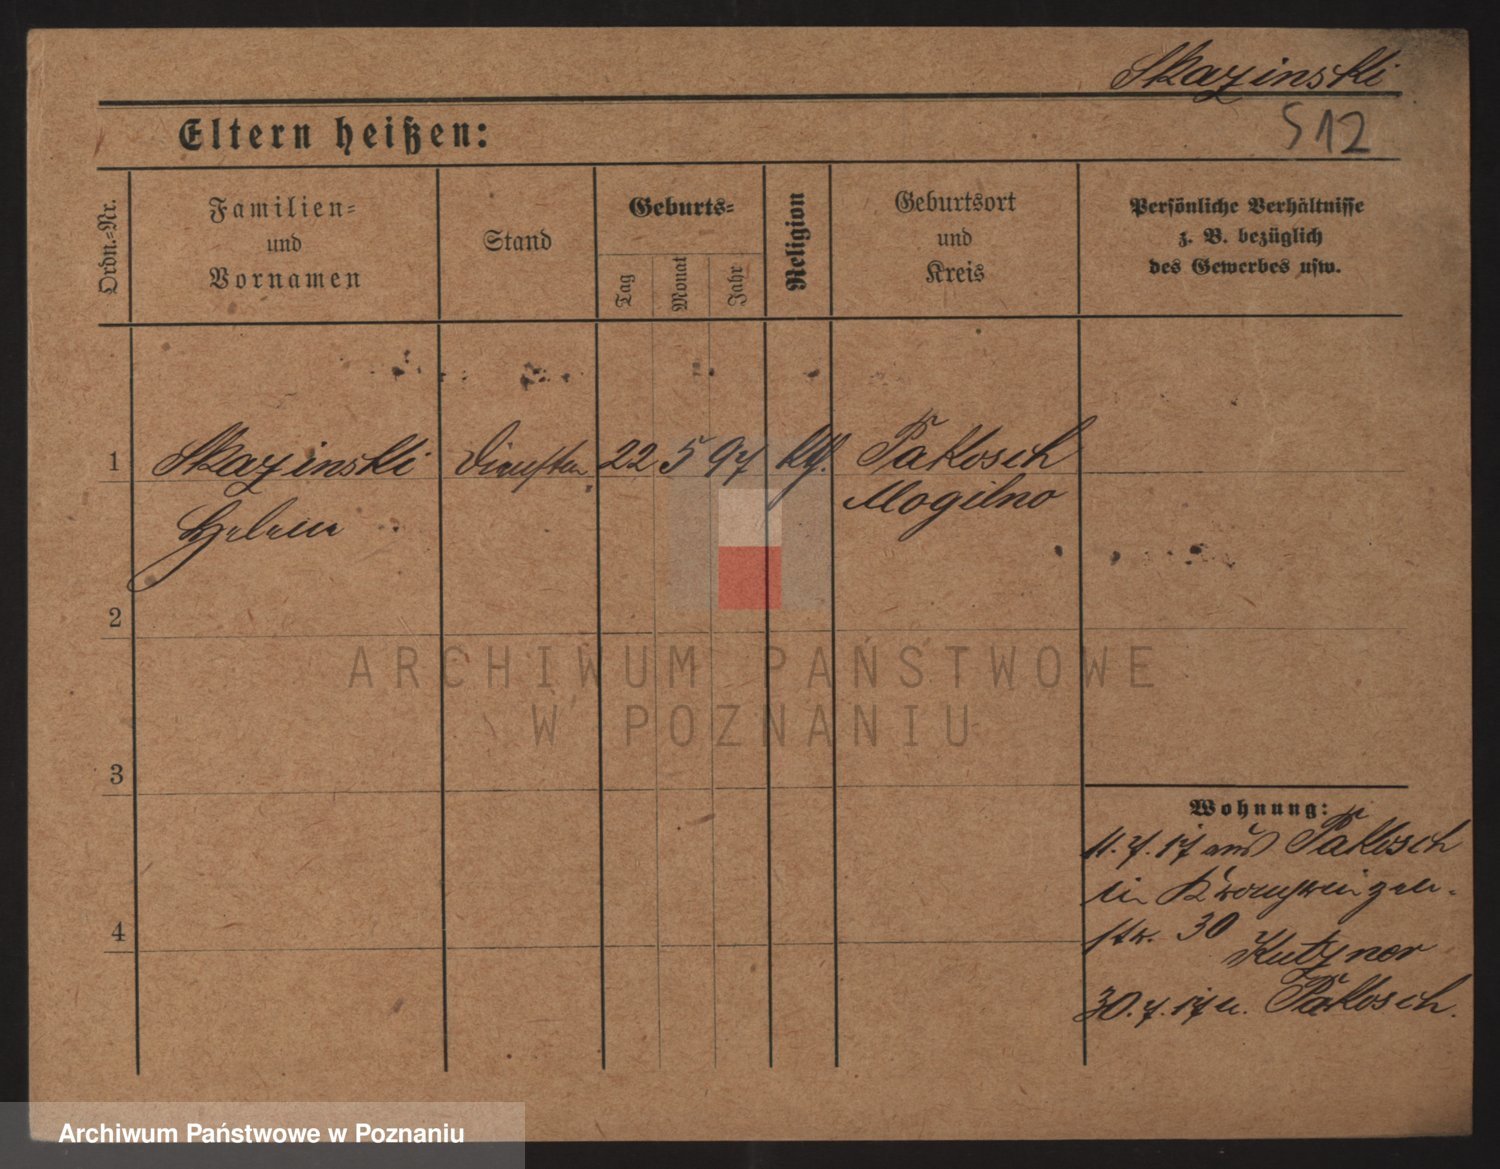 Skazinski
Eltern heißen:
512
Ordn.-Nr.
Familien-
und
Vornamen
Stand
Geburts-
Tag
Monat
Jahr
Religion
Geburtsort
und
Kreis
Persönliche Verhältnisse
z. B. bezüglich
des Gewerbes usw.
1 Skazinski 22 5 97 kth. Pakosch
Helene Mogilno
2
3
4
Wohnung:
11.7.17 aus Pakosch
in Kronprinzen-
str. 30
Kutzner
30.7.17 n. Pakosch.
ARCHIWUM PAŃSTWOWE
W POZNANIU
Archiwum Państwowe w Poznaniu